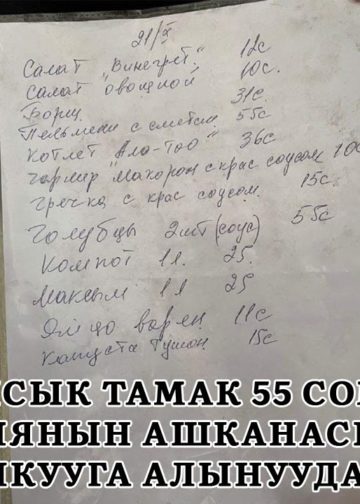 21/X
Салат "Винегрет" 12с
Салат "овощной" 10с.
Борщ 31с.
Пельмени с сметан 55с
Котлет "Ала-тоо" 36с
Гарнир "Макорон с крас соусом 10с
Гречка с крас соусом. 15с
Голубцы 2шт (соус) 55с
Компот 1л. 25.
Максым 1л 25
Яйцо варен 11с
Капуста тушон 15с
СЫК ТАМАК 55 СО
ЯНЫН АШКАНАС
КУУГА АЛЫНУУДА